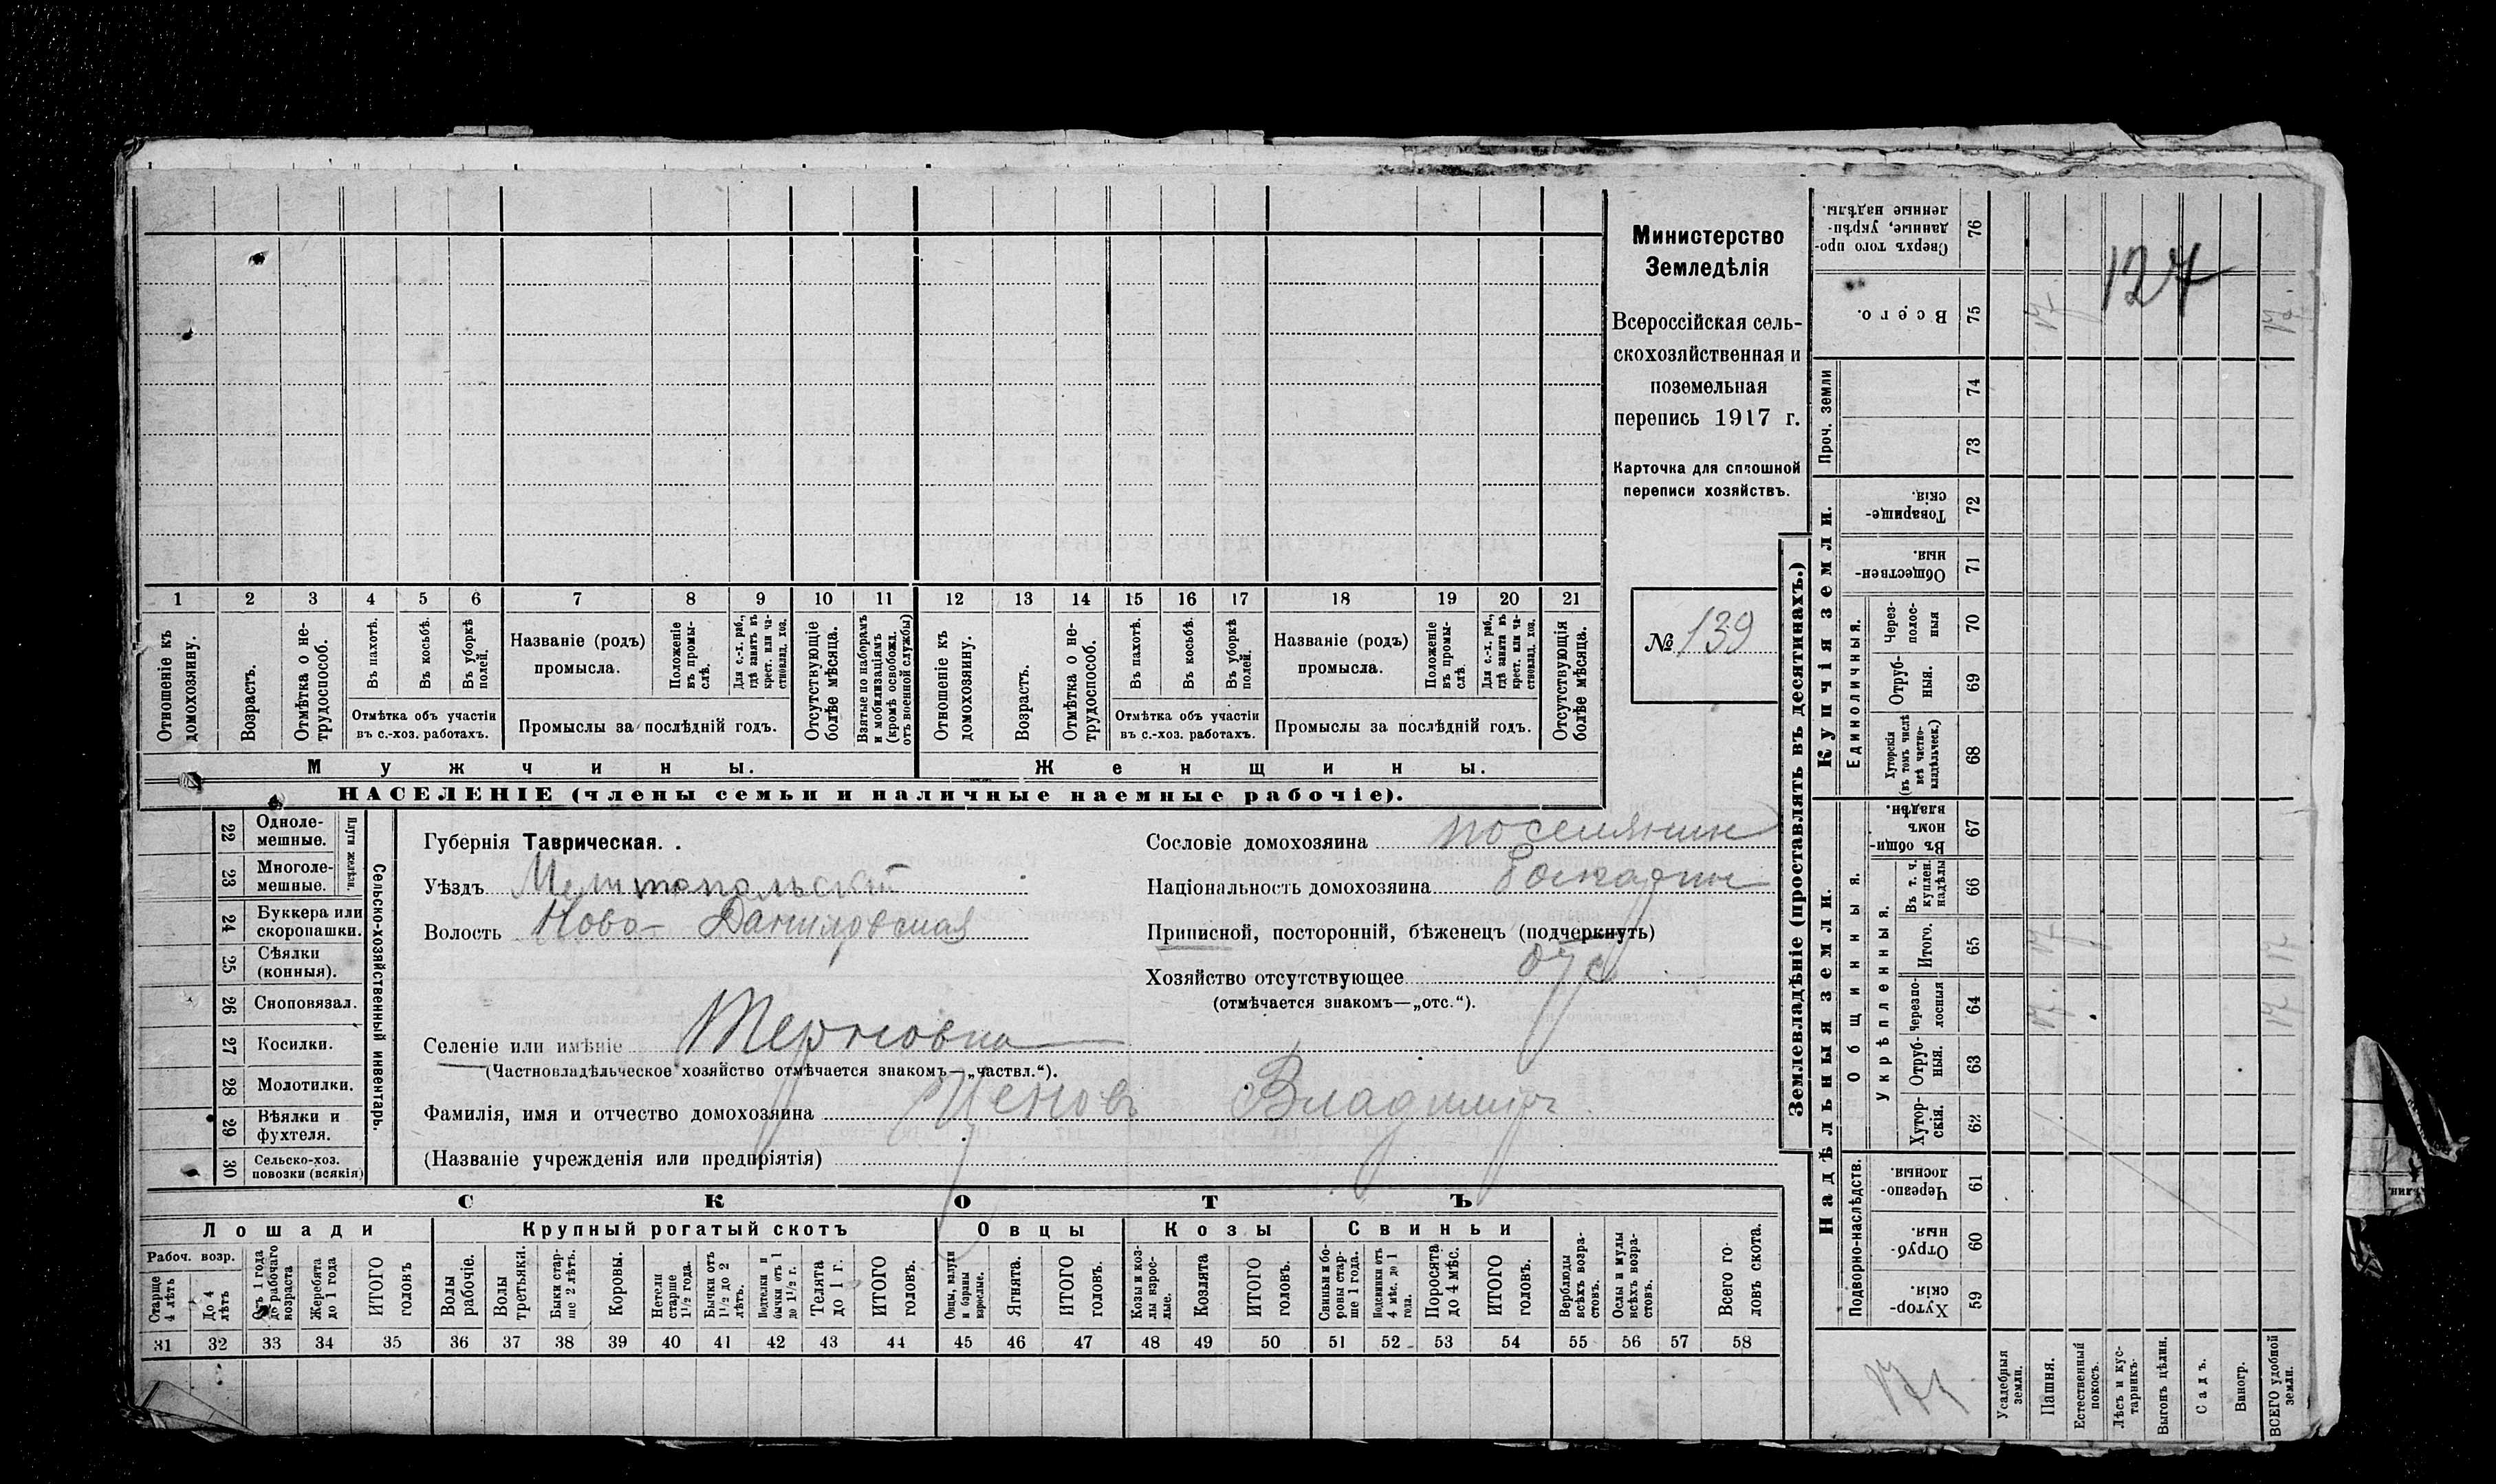 Министерство
Земледѣлія
Всероссійская сель-
скохозяйственная и
поземельная
перепись 1917 г.
Карточка для сплошной
переписи хозяйствъ.
№ 139
1 2 3 4 5 6 7 8 9 10 11 12 13 14 15 16 17 18 19 20 21
Отношеніе къ
домохозяину.
Возрастъ.
Отмѣтка о не-
трудоспособ.
Въ пахотѣ.
Въ косьбѣ.
Въ уборкѣ
полей.
Отмѣтка объ участіи
въ с.-хоз. работахъ.
Названіе (родъ)
промысла.
Положеніе
въ промы-
слѣ.
Для с.-х. раб.,
гдѣ занятъ въ
крест. или ча-
стновлад. хоз.
Промыслы за послѣдній годъ.
Отсутствующіе
болѣе мѣсяца.
Взятые по наборамъ
и мобилизаціямъ
(кромѣ освобожд.
отъ военной службы)
Отношеніе къ
домохозяину.
Возрастъ.
Отмѣтка о не-
трудоспособ.
Въ пахотѣ.
Въ косьбѣ.
Въ уборкѣ
полей.
Отмѣтка объ участіи
въ с.-хоз. работахъ.
Названіе (родъ)
промысла.
Положеніе
въ промы-
слѣ.
Для с.-х. раб.,
гдѣ занята въ
крест. или ча-
стновлад. хоз.
Промыслы за послѣдній годъ.
Отсутствующія
болѣе мѣсяца.
Мужчины.
Женщины.
НАСЕЛЕНІЕ (члены семьи и наличные наемные рабочіе).
22 Одноле-
мешные.
23 Многоле-
мешные.
Плуги желѣзн.
24 Буккера или
скоропашки.
25 Сѣялки
(конныя).
26 Сноповязал.
27 Косилки.
28 Молотилки.
29 Вѣялки и
фухтеля.
30 Сельско-хоз.
повозки (всякія)
Сельско-хозяйственный инвентарь.
Губернія Таврическая.
Уѣздъ Мелитопольскій
Волость Ново-Даниловская
Селеніе или имѣніе Терновка
(Частновладѣльческое хозяйство отмѣчается знакомъ—„частвл.“).
Фамилія, имя и отчество домохозяина Ценовъ Владимиръ
(Названіе учрежденія или предпріятія)
Сословіе домохозяина поселянин
Національность домохозяина Болгарин
Приписной, посторонній, бѣженецъ (подчеркнуть)
Хозяйство отсутствующее отс.
(отмѣчается знакомъ—„отс.“).
СКОТЪ
Лошади
Крупный рогатый скотъ
Овцы
Козы
Свиньи
Рабоч. возр.
Старше
4 лѣтъ
До 4
лѣтъ
Отъ 1 года
до рабочаго
возраста
Жеребята
до 1 года
ИТОГО
головъ
Волы
рабочіе.
Волы
третьяки.
Быки стар-
ше 2 лѣтъ.
Коровы.
Нетели
старше
1½ года.
Бычки отъ
1½ до 2
лѣтъ.
Подтелки и
бычки отъ 1
до 1½ г.
Телята
до 1 г.
ИТОГО
головъ.
Овцы, валухи
и бараны
взрослые.
Ягнята.
ИТОГО
головъ.
Козы и коз-
лы взрос-
лые.
Козлята
ИТОГО
головъ.
Свиньи и бо-
ровы стар-
ше 1 года.
Подсвинки отъ
4 мѣс. до 1
года.
Поросята
до 4 мѣс.
ИТОГО
головъ.
Верблюды
всѣхъ возра-
стовъ.
Ослы и мулы
всѣхъ возра-
стовъ.
Всего го-
ловъ скота.
31 32 33 34 35 36 37 38 39 40 41 42 43 44 45 46 47 48 49 50 51 52 53 54 55 56 57 58
Землевладѣніе (проставлять въ десятинахъ.)
Купчія земли.
Надѣльныя земли.
Сверхъ того про-
данные, укрѣп-
ленные надѣлы.
76
Всего.
75
17.
127
17.
Проч. земли
74
73
Товарище-
скія.
72
Обществен-
ныя.
71
Единоличныя.
Через-
полос-
ныя
70
Отруб-
ныя.
69
Хуторскія
(въ томъ числѣ
всѣ частно-
владѣльческ.)
68
Общинныя.
Въ общин-
номъ
владѣн.
67
Укрѣпленныя.
Въ т. ч.
куплен.
надѣлы
66
Итого.
65
17
17
Черезпо-
лосныя
64
17.
17
Отруб-
ныя.
63
Хутор-
скія.
62
Подворно-наслѣдств.
Черезпо-
лосныя.
61
Отруб-
ныя.
60
Хутор-
скія.
59
Усадебныя
земли.
Пашня.
Естественный
покосъ.
Лѣсъ и кус-
тарникъ.
Выгонъ цѣлин.
Садъ.
Виногр.
ВСЕГО удобной
земли.